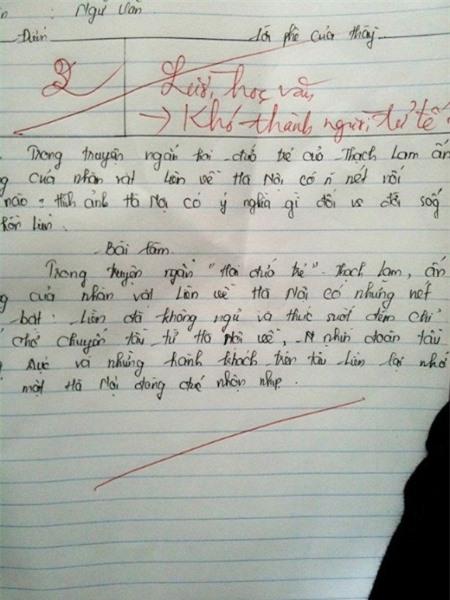 : Ngữ Văn
Điểm Lời phê của thầy
2 Lười học văn
→ Khó thành người tử tế
Trong truyện ngắn Hai đứa trẻ của Thạch Lam ấn
g của nhân vật Liên về Hà Nội có n nét nổi
nào. Hình ảnh Hà Nội có ý nghĩa gì đối vs đời sống
Liên.
Bài làm
Trong truyện ngắn "Hai đứa trẻ" Thạch Lam, ấn
g của nhân vật Liên về Hà Nội có những nét
bật. Liên đã không ngủ và thức suốt đêm chỉ
chờ chuyến tàu từ Hà Nội về, nhìn đoàn tàu
rực và những hành khách trên tàu Liên lại nhớ
một Hà Nội đông đúc nhộn nhịp.